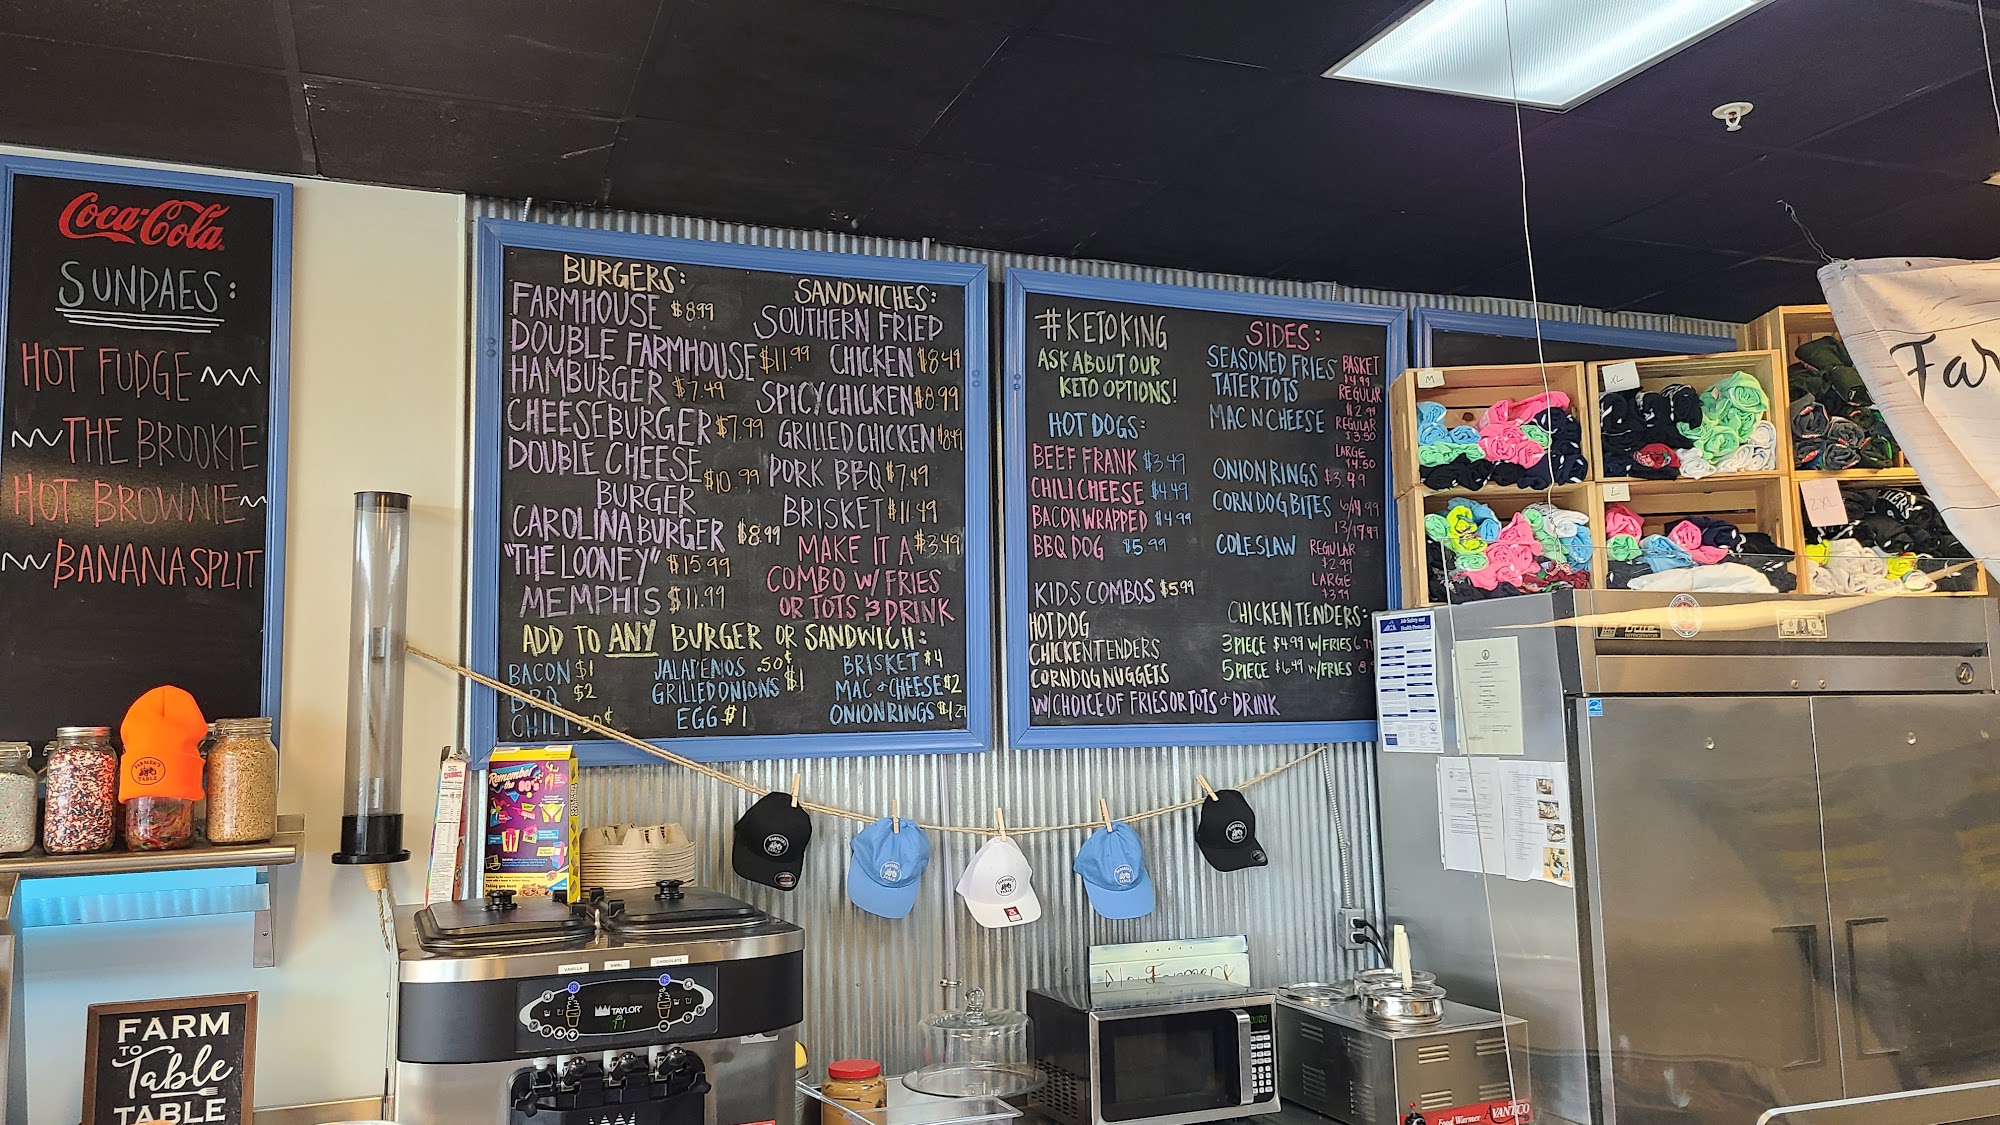 Coca-Cola
SUNDAES:
HOT FUDGE
THE BROOKIE
HOT BROWNIE
BANANA SPLIT
BURGERS:
FARMHOUSE $8.99
DOUBLE FARMHOUSE $11.99
HAMBURGER $7.49
CHEESEBURGER $7.99
DOUBLE CHEESE
BURGER $10.99
CAROLINA BURGER $8.99
"THE LOONEY" $15.99
MEMPHIS $11.99
SANDWICHES:
SOUTHERN FRIED
CHICKEN $8.49
SPICY CHICKEN $8.99
GRILLED CHICKEN $8.49
PORK BBQ $7.49
BRISKET $11.49
MAKE IT A $3.49
COMBO W/ FRIES
OR TOTS & DRINK
ADD TO ANY BURGER OR SANDWICH:
BACON $1
BBQ $2
CHILI .50¢
JALAPENOS .50¢
GRILLED ONIONS $1
EGG $1
BRISKET $4
MAC & CHEESE $2
ONION RINGS
#KETOKING
ASK ABOUT OUR
KETO OPTIONS!
HOT DOGS:
BEEF FRANK $3.49
CHILI CHEESE $4.49
BACON WRAPPED $4.99
BBQ DOG $5.99
KIDS COMBOS $5.99
HOT DOG
CHICKEN TENDERS
CORN DOG NUGGETS
W/ CHOICE OF FRIES OR TOTS & DRINK
SIDES:
SEASONED FRIES BASKET
$4.99
TATER TOTS REGULAR
$2.99
MAC N CHEESE REGULAR
$3.50
LARGE
$4.50
ONION RINGS $3.49
CORN DOG BITES 6/4.99
COLESLAW REGULAR
$2.99
LARGE
$3.99
CHICKEN TENDERS:
3 PIECE $4.99 W/ FRIES
5 PIECE $6.49 W/ FRIES
M
XL
L
2XL
Far
Job Safety and
Health Protection
FARMER'S
TABLE
Remember
the 80's
VANILLA
SWIRL
CHOCOLATE
TAYLOR
FARM
TO
Table
TABLE
Food Warmer AVANTCO